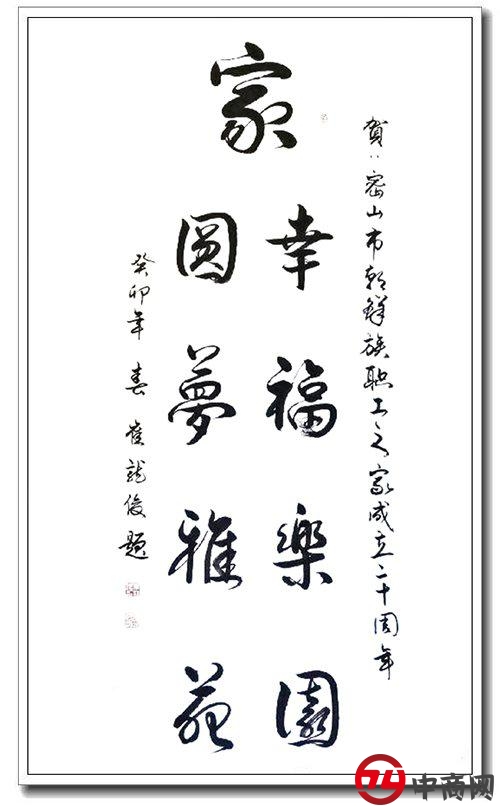 賀：密山市朝鲜族职工之家成立二十周年
家
幸福樂園
圓夢雅苑
癸卯年春崔龍俊題
中商网